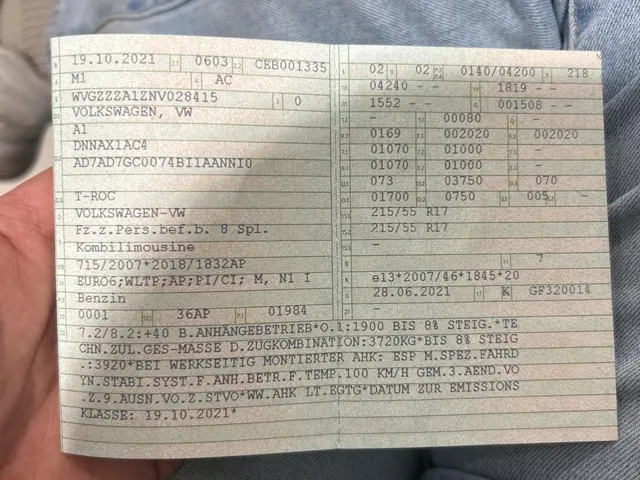 19.10.2021 0603 CEB001335
M1 AC
WVGZZZA1ZNV028415 0
VOLKSWAGEN, VW
A1
DNNAX1AC4
AD7AD7GC0074BI1AANNI0
T-ROC
VOLKSWAGEN-VW
Fz.z.Pers.bef.b. 8 Spl.
Kombilimousine
715/2007*2018/1832AP
EURO6;WLTP;AP;PI/CI; M, N1 I
Benzin
0001 36AP 01984
02 02 0140/04200 218
04240 - - 1819 - -
1552 - - 001508 - -
- 00080 -
0169 002020 002020
01070 01000 -
01070 01000 -
073 03750 070
01700 0750 005 -
215/55 R17
215/55 R17
-
- 7
e13*2007/46*1845*20
28.06.2021 K GF320014
-
7.2/8.2:+40 B.ANHÄNGEBETRIEB*O.1:1900 BIS 8% STEIG.*TE
CHN.ZUL.GES-MASSE D.ZUGKOMBINATION:3720KG*BIS 8% STEIG
.:3920*BEI WERKSEITIG MONTIERTER AHK: ESP M.SPEZ.FAHRD
YN.STABI.SYST.F.ANH.BETR.F.TEMP.100 KM/H GEM.3.AEND.VO
.Z.9.AUSN.VO.Z.STVO*WW.AHK LT.EGTG*DATUM ZUR EMISSIONS
KLASSE: 19.10.2021*